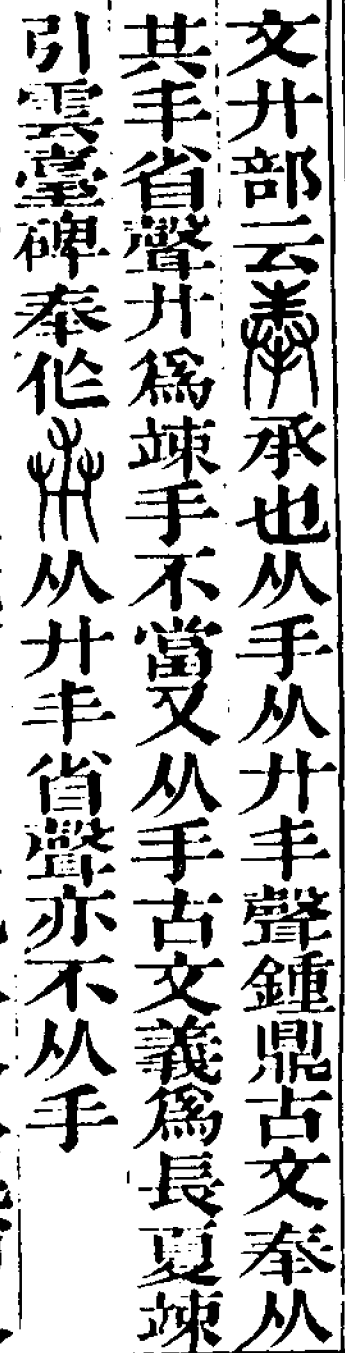 文廾部云𡴬承也从手从廾丰聲鍾鼎古文奉从
共丰省聲廾爲竦手不當又从手古文義爲長夏竦
引雲臺碑奉作从廾丰省聲亦不从手